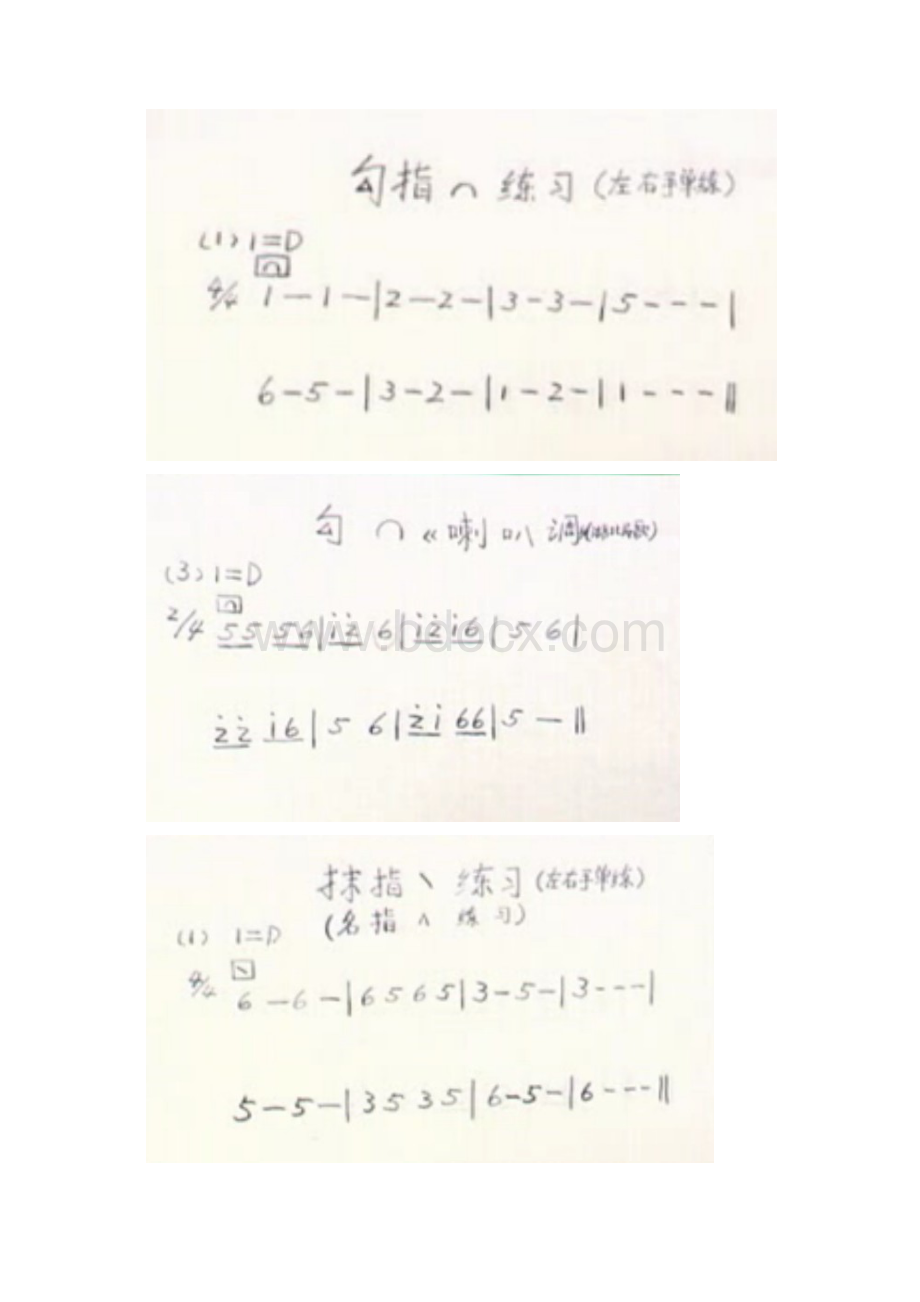 勾指 ∩ 练习 (左右手单练)
(1) 1=D
∩
4/4 1 — 1 — | 2 — 2 — | 3 - 3 - | 5 - - - |
6 - 5 - | 3 - 2 - | 1 - 2 - | 1 - - - ‖
勾 ∩ 《喇叭调
(3) 1=D
∩
2/4 5 5 5 6 | i̇ 2̇ 6 | i̇ 2̇ i̇ 6 | 5 6 |
www.bdocx.com
2̇ 2̇ i̇ 6 | 5 6 | 2̇ i̇ 6 6 | 5 — ‖
抹指 ㇏ 练习 (左右手单练)
(名指 ∧ 练习)
(1) 1=D
㇏
4/4 6 — 6 — | 6 5 6 5 | 3 - 5 - | 3 - - - |
5 — 5 — | 3 5 3 5 | 6 - 5 - | 6 - - - ‖